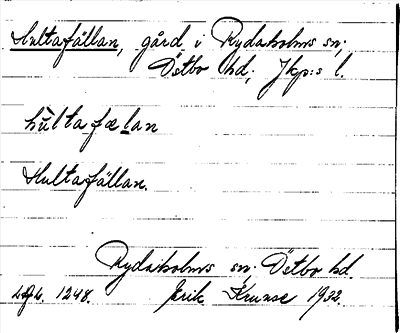 Hultafällan, gård i Rydaholms sn;
Östbo hd; Jkp:s l.
hùltafælan
Hultafällan.
Rydaholms sn; Östbo hd.
1248. Erik Kruuse 1932.